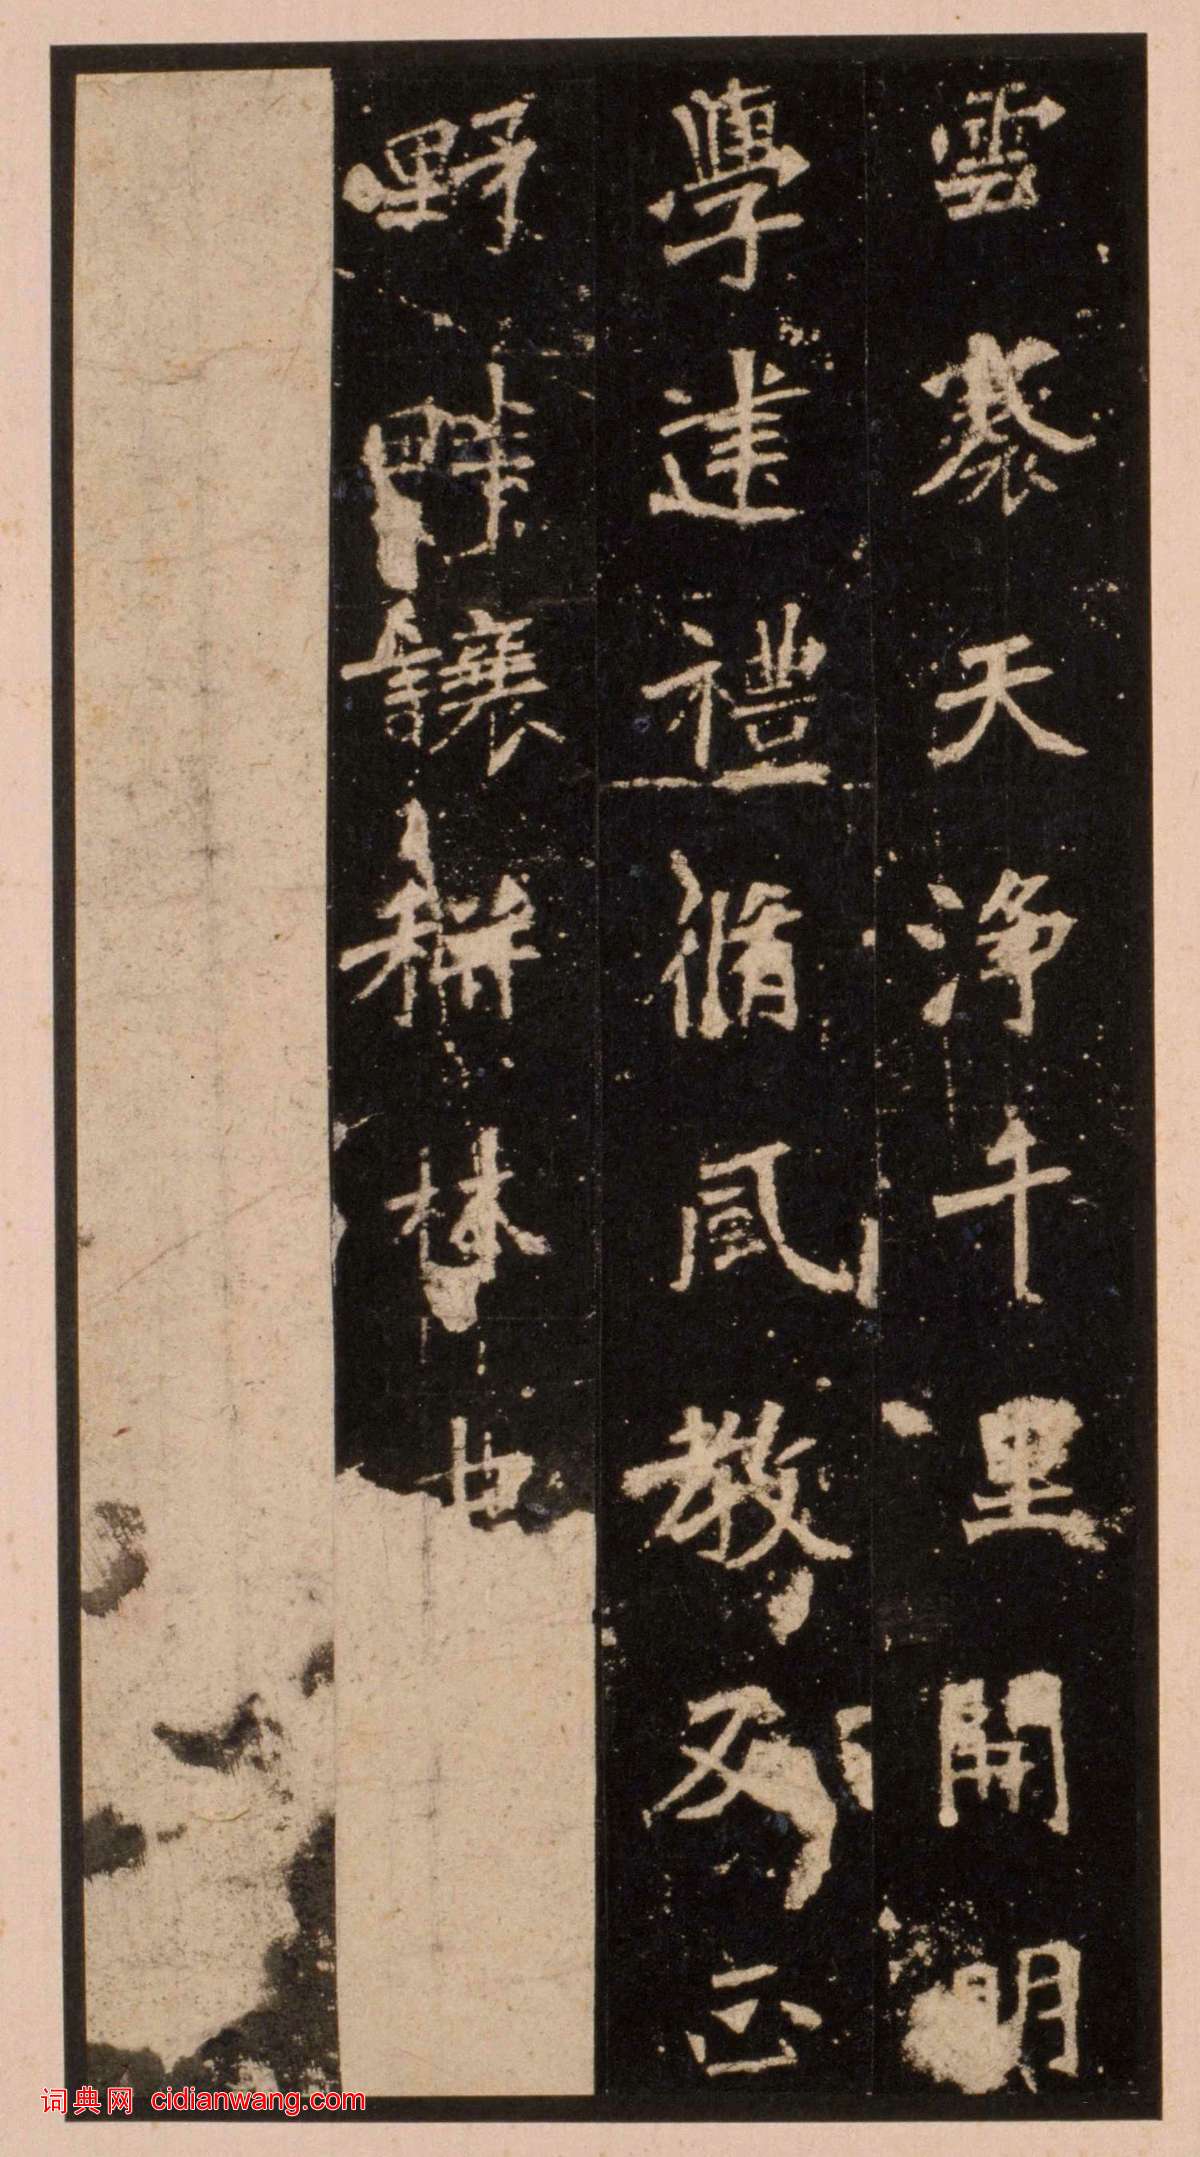 雲褰天淨千里開明
學建禮脩風教反正
野畔讓耕林
词典网 cidianwang.com